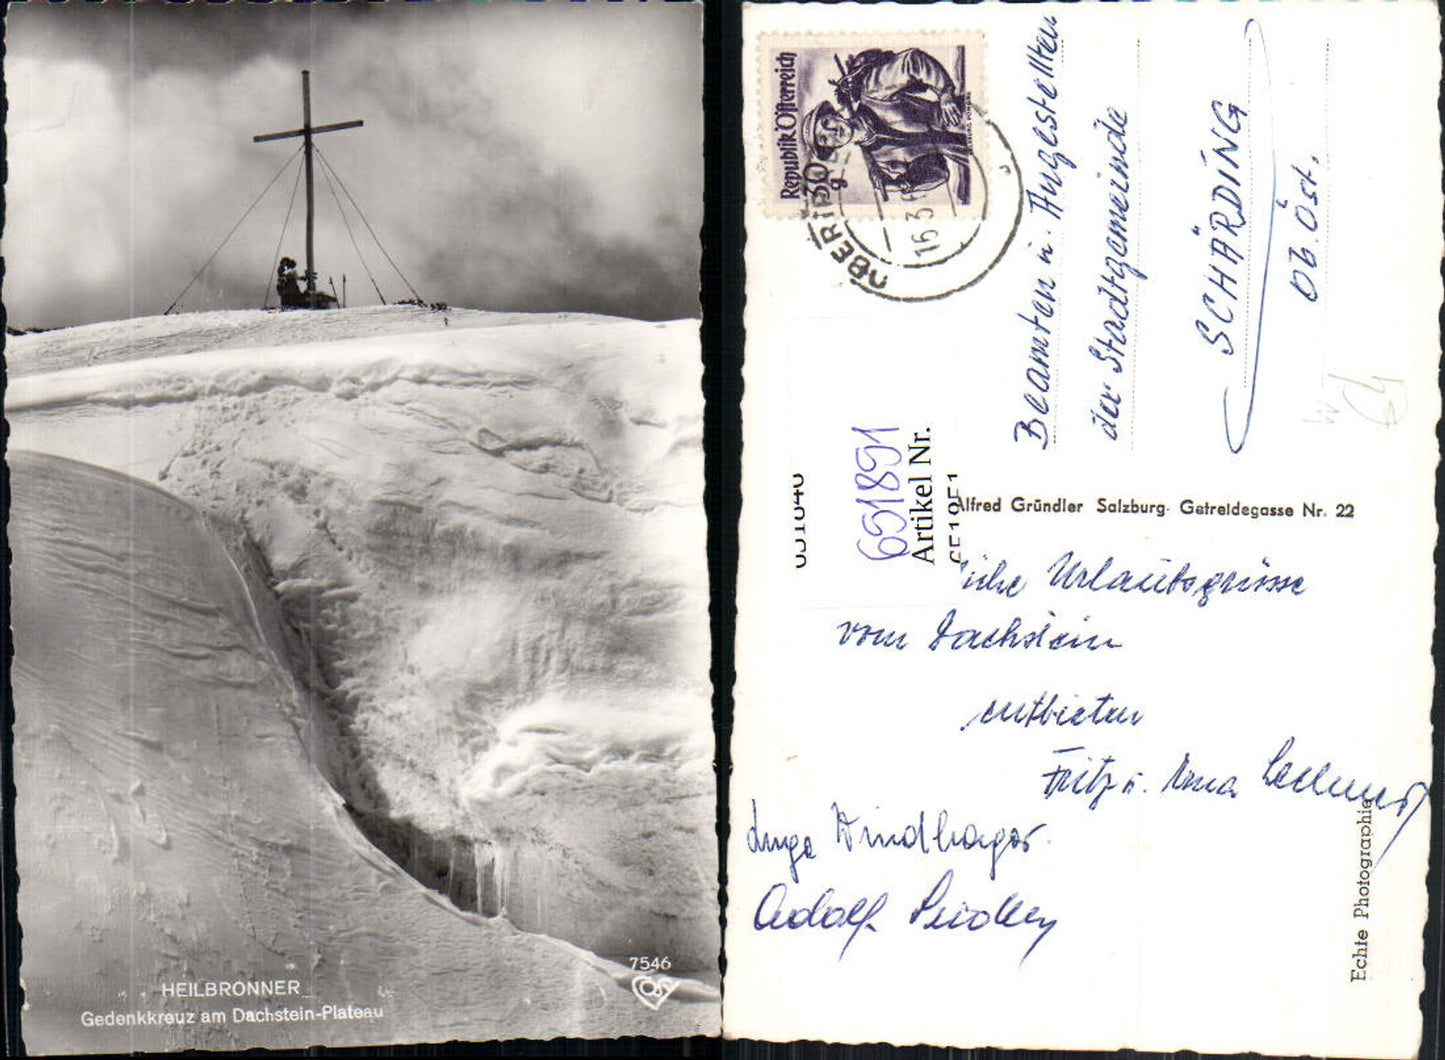 HEILBRONNER
Gedenkkreuz am Dachstein-Plateau
7546
Republik Österreich
30 g
16.3
Beamten u. Angestellten
der Stadtgemeinde
SCHÄRDING
Ob. Öst.
651891
Artikel Nr.
Alfred Gründler Salzburg- Getreidegasse Nr. 22
iche Urlaubsgrüsse
vom Dachstein
entbieten
Fritz u. Erna
Inge Windhager
Adolf
Echte Photographie